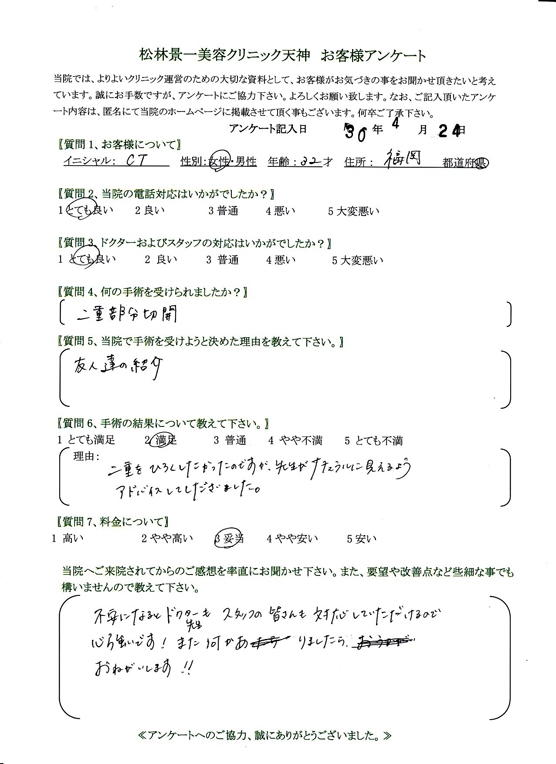 松林景一美容クリニック天神　お客様アンケート
当院では、よりよいクリニック運営のための大切な資料として、お客様がお気づきの事をお聞かせ頂きたいと考え
ています。誠にお手数ですが、アンケートにご協力下さい。よろしくお願い致します。なお、ご記入頂いたアンケ
ート内容は、匿名にて当院のホームページに掲載させて頂く事もございます。何卒ご了承下さい。
アンケート記入日　30年 4 月 24日
〖質問 1、お客様について〗
イニシャル： CT　性別：女性・男性　年齢：32才　住所：福岡　都道府県
〖質問 2、当院の電話対応はいかがでしたか？〗
1 とても良い　2 良い　3 普通　4 悪い　5 大変悪い
〖質問 3、ドクターおよびスタッフの対応はいかがでしたか？〗
1 とても良い　2 良い　3 普通　4 悪い　5 大変悪い
〖質問 4、何の手術を受けられましたか？〗
二重部分切開
〖質問 5、当院で手術を受けようと決めた理由を教えて下さい。〗
友人達の紹介
〖質問 6、手術の結果について教えて下さい。〗
1 とても満足　2 満足　3 普通　4 やや不満　5 とても不満
理由：
二重をひろくしたかったのですが、先生がナチュラルに見えるよう
アドバイスしてしださいました。
〖質問 7、料金について〗
1 高い　2 やや高い　3 妥当　4 やや安い　5 安い
当院へご来院されてからのご感想を率直にお聞かせ下さい。また、要望や改善点など些細な事でも
構いませんので教えて下さい。
不安になるとドクター先生も スタッフの皆さんも 対応していただけるので
心強いです！ また何かありましたら、
おねがいします!!
≪アンケートへのご協力、誠にありがとうございました。≫